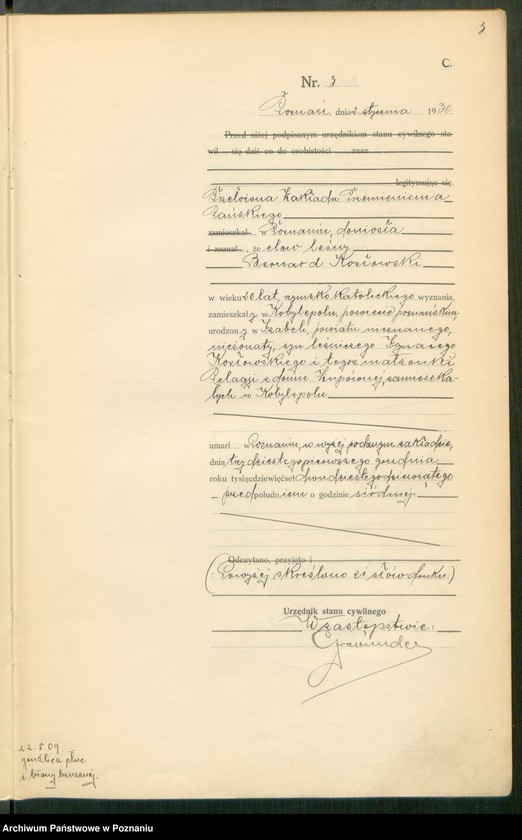 3.
C.
Nr. 3
Poznań, dnia 2 stycznia 1930.
Przed niżej podpisanym urzędnikiem stanu cywilnego sta-
wił się dziś co do osobistości znan
legitymując się
Przełożona Zakładu Przemienienia
Pańskiego
zamieszkał w Poznaniu, doniosła
i zeznał, że elew leśny
Bernard Kozłowski
w wieku 20 lat, rzymsko katolickiego wyznania,
zamieszkały w Kobylepolu, powiecie poznańskim,
urodzony w Izabeli, powiatu nieznanego,
nieżonaty, syn leśniczego Ignacego
Kozłowskiego i tegoż małżonki
Pelagji z domu, zamieszka-
łych w Kobylepolu
umarł w Poznaniu, w wyżej podanym zakładzie,
dnia trzydziestego pierwszego grudnia
roku tysiącdziewięćset dwudziestego dziewiątego
przed południem o godzinie siódmej.
Odczytano, przyjęto i
(Powyżej skreślono słów druku.)
Urzędnik stanu cywilnego
W zastępstwie:
22.5.09
gruźlica płuc
i błony
Archiwum Państwowe w Poznaniu